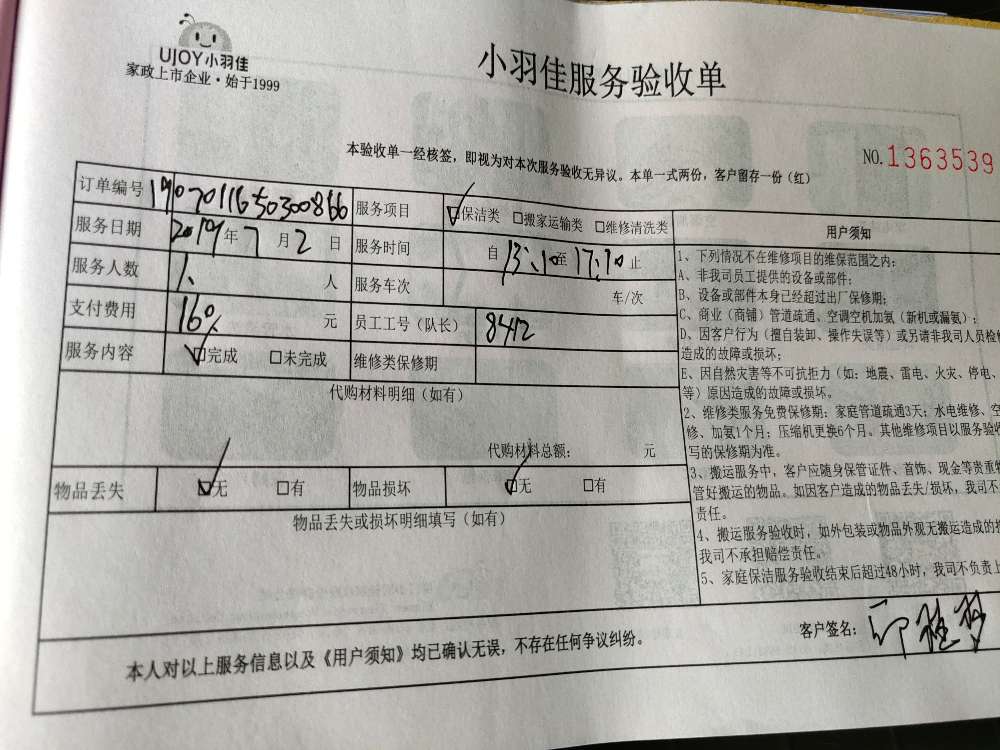 UJOY小羽佳
家政上市企业·始于1999
小羽佳服务验收单
本验收单一经核签，即视为对本次服务验收无异议。本单一式两份，客户留存一份（红）
NO.1363539
订单编号 19070116530300866 服务项目 ☑保洁类 □搬家运输类 □维修清洗类
服务日期 2019年7月2日 服务时间 自13:10至17:10止
服务人数 1.人 服务车次 车/次
支付费用 160元 员工工号（队长） 8412
服务内容 ☑完成 □未完成 维修类保修期
代购材料明细（如有）
代购材料总额： 元
物品丢失 ☑无 □有 物品损坏 ☑无 □有
物品丢失或损坏明细填写（如有）
用户须知
1、下列情况不在维修项目的维保范围之内：
A、非我司员工提供的设备或部件；
B、设备或部件本身已经超过出厂保修期；
C、商业（商铺）管道疏通、空调空机加氨（新机或漏氨）；
D、因客户行为（擅自装卸、操作失误等）或另请非我司人员检修
造成的故障或损坏；
E、因自然灾害等不可抗拒力（如：地震、雷电、火灾、停电、
等）原因造成的故障或损坏。
2、维修类服务免费保修期：家庭管道疏通3天；水电维修、空
修、加氨1个月；压缩机更换6个月。其他维修项目以服务验收
写的保修期为准。
3、搬运服务中，客户应随身保管证件、首饰、现金等贵重物
管好搬运的物品。如因客户造成的物品丢失/损坏，我司不
责任。
4、搬运服务验收时，如外包装或物品外观无搬运造成的损
我司不承担赔偿责任。
5、家庭保洁服务验收结束后超过48小时，我司不负责上
本人对以上服务信息以及《用户须知》均已确认无误，不存在任何争议纠纷。
客户签名：